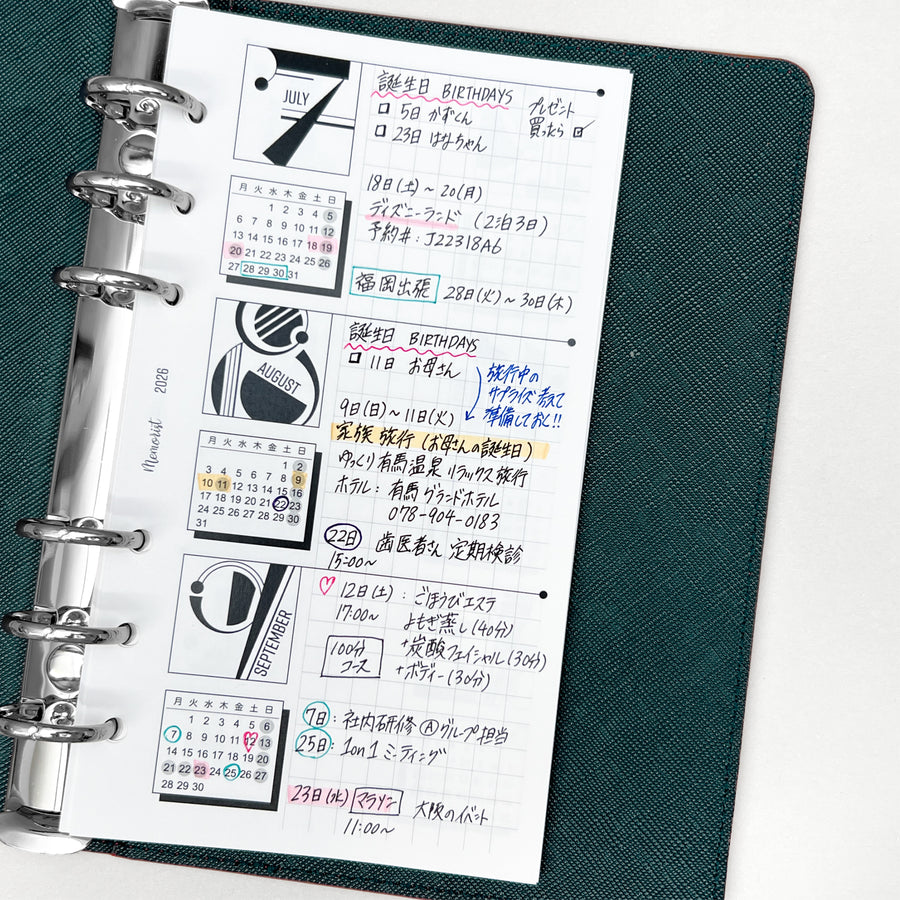 Memorist 2026
JULY
7
誕生日 BIRTHDAYS
5日 かずくん
23日 はなちゃん
プレゼント
買ったら
月 火 水 木 金 土 日
1 2 3 4 5
6 7 8 9 10 11 12
13 14 15 16 17 18 19
20 21 22 23 24 25 26
27 28 29 30 31
18日(土)~20(月)
ディズニーランド (2泊3日)
予約#:J22318A6
福岡出張 28日(火)~30日(木)
8
AUGUST
誕生日 BIRTHDAYS
11日 お母さん
旅行中の
サプライズ 考えて
準備しておく!!
月 火 水 木 金 土 日
1 2
3 4 5 6 7 8 9
10 11 12 13 14 15 16
17 18 19 20 21 22 23
24 25 26 27 28 29 30
31
9日(日)~11日(火)
家族 旅行 (お母さんの誕生日)
ゆっくり 有馬温泉 リラックス旅行
ホテル: 有馬グランドホテル
078-904-0183
22日 歯医者さん 定期検診
15:00~
9
SEPTEMBER
12日(土):ごほうびエステ
17:00~ よもぎ蒸し(40分)
100分
コース
+炭酸フェイシャル(30分)
+ボディー(30分)
月 火 水 木 金 土 日
1 2 3 4 5 6
7 8 9 10 11 12 13
14 15 16 17 18 19 20
21 22 23 24 25 26 27
28 29 30
7日:社内研修 Ⓐグループ担当
25日:1on1 ミーティング
23日(水) マラソン 大阪のイベント
11:00~